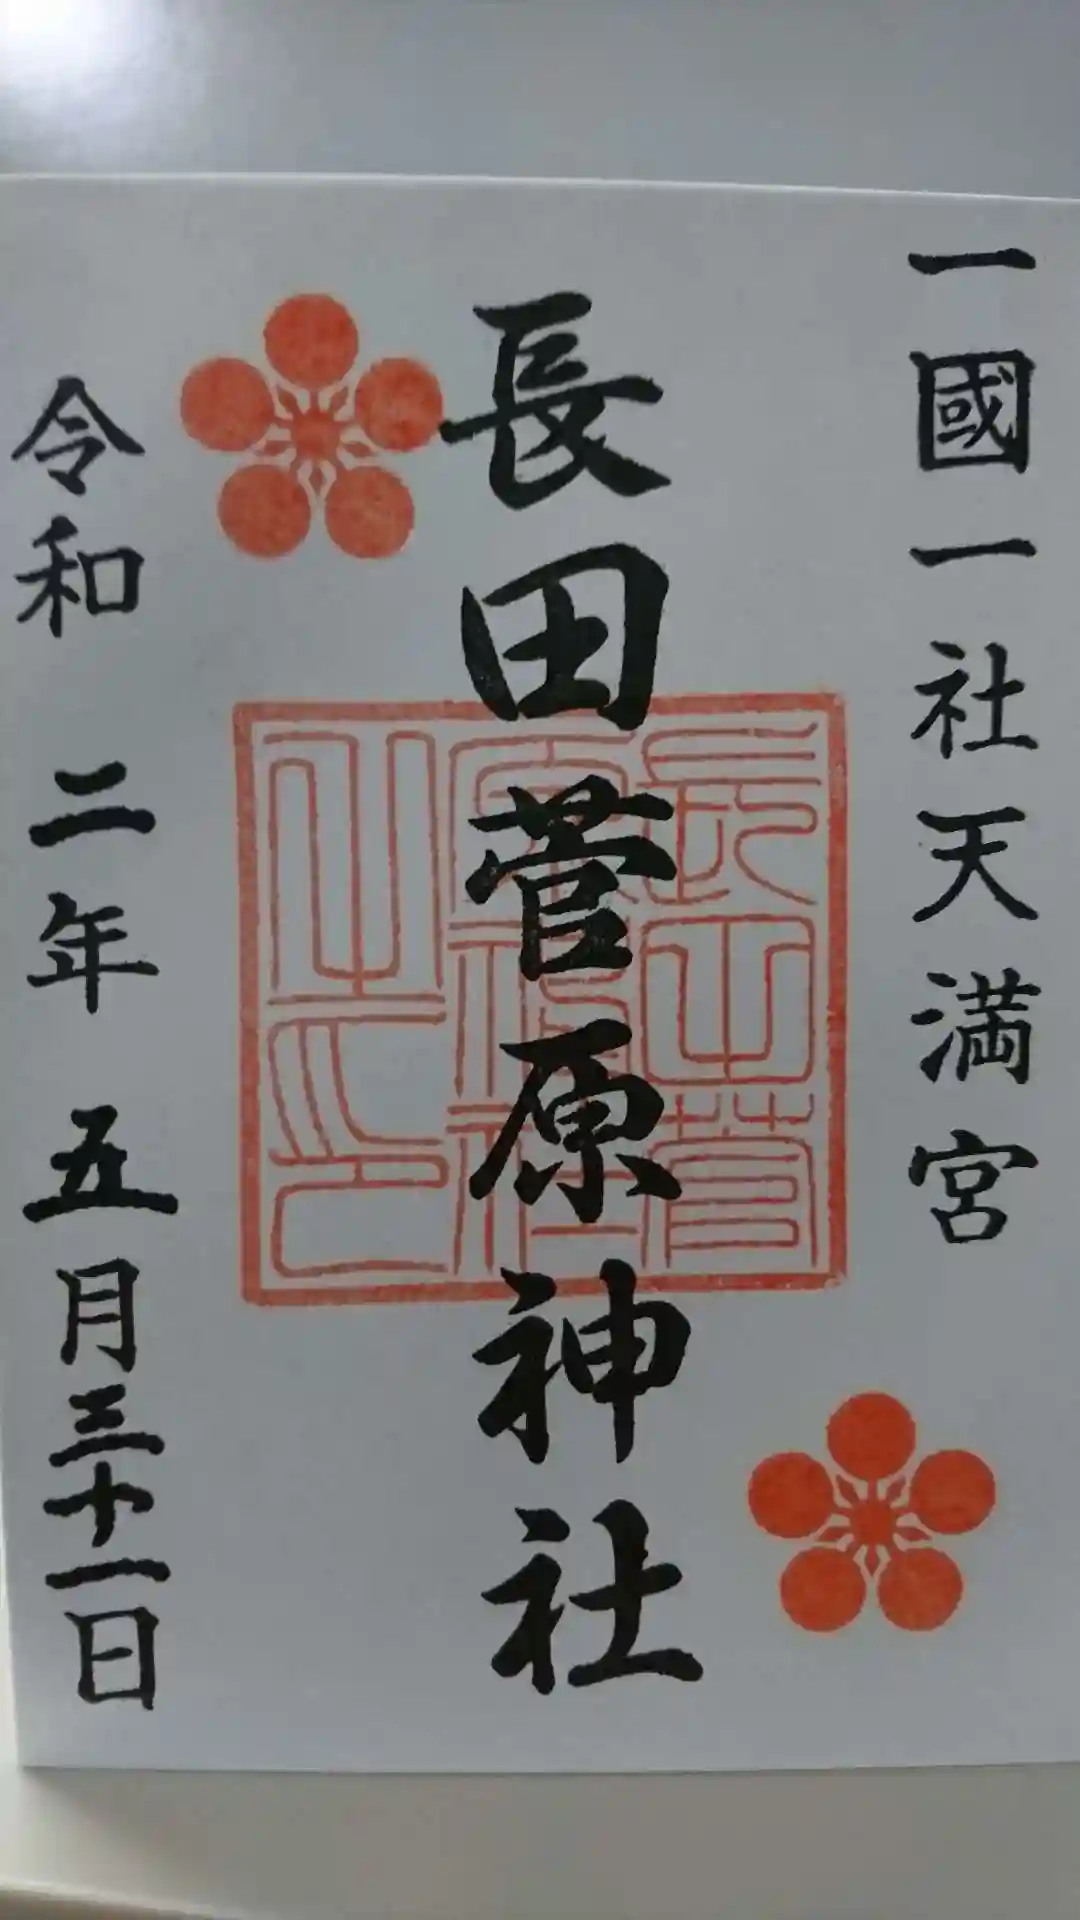 一國一社天満宮
長田菅原神社
長田菅原神社之印
令和二年五月三十一日